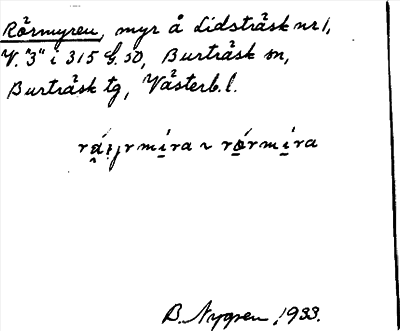 Rörmyren, myr å Lidsträsk nr 1,
V. "3" i 315 G. 50, Burträsk sn,
Burträsk tg, Västerb. l.
rörmira
B. Nygren, 1933.